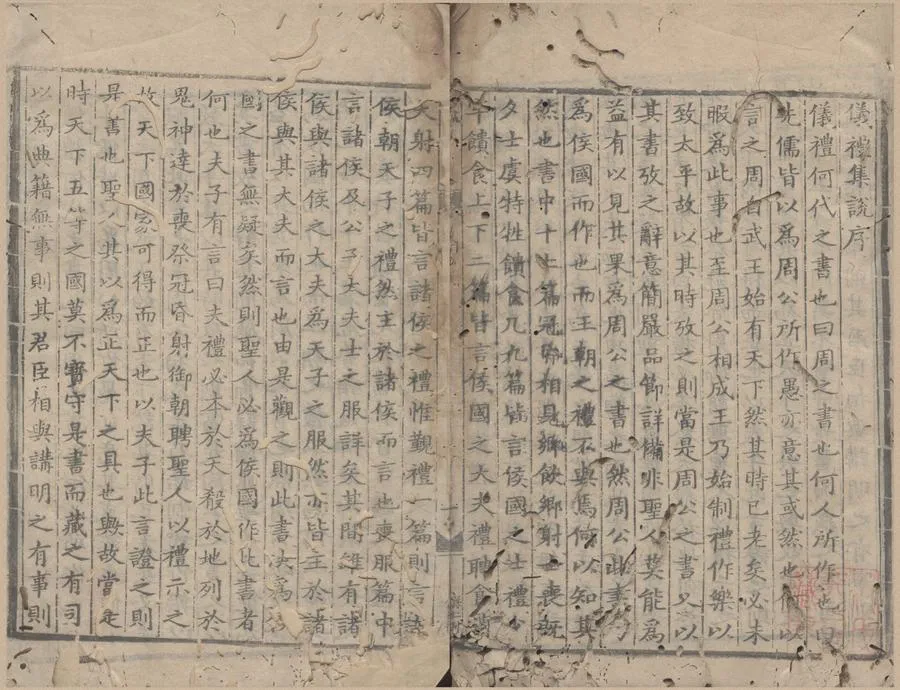 儀禮集說序
儀禮何代之書也曰周之書也何人所作也曰
先儒皆以為周公所作愚亦意其或然也何以
言之周自武王始有天下然其時已老矣必未
暇為此事也至周公相成王乃始制禮作樂以
致太平故以其時攷之則當是周公之書又以
其書攷之辭意簡嚴品節詳備非聖人莫能為
益有以見其果為周公之書也然周公此書
為侯國而作也而王朝之禮不與焉何以知其
然也書中十七篇冠昏相見鄉飲鄉射士喪既
夕士虞特牲饋食凡九篇皆言侯國之士禮少
牢饋食上下二篇皆言侯國之大夫禮聘食燕
大射四篇皆言諸侯之禮惟覲禮一篇則言諸
侯朝天子之禮然主於諸侯而言也喪服篇中
言諸侯及公子大夫士之服詳矣其間雖有諸
侯與諸侯之大夫為天子之服然亦皆主於諸
侯與其大夫而言也由是觀之則此書決為侯
國之書無疑矣然則聖人必為侯國作此書者
何也夫子有言曰夫禮必本於天殽於地列於
鬼神達於喪祭冠昏射御朝聘聖人以禮示之
故天下國家可得而正也以夫子此言證之則
是書也聖人其以為正天下之具也與故當是
時天下五等之國莫不寶守是書而藏之有司
以為典籍無事則其君臣相與講明之有事則